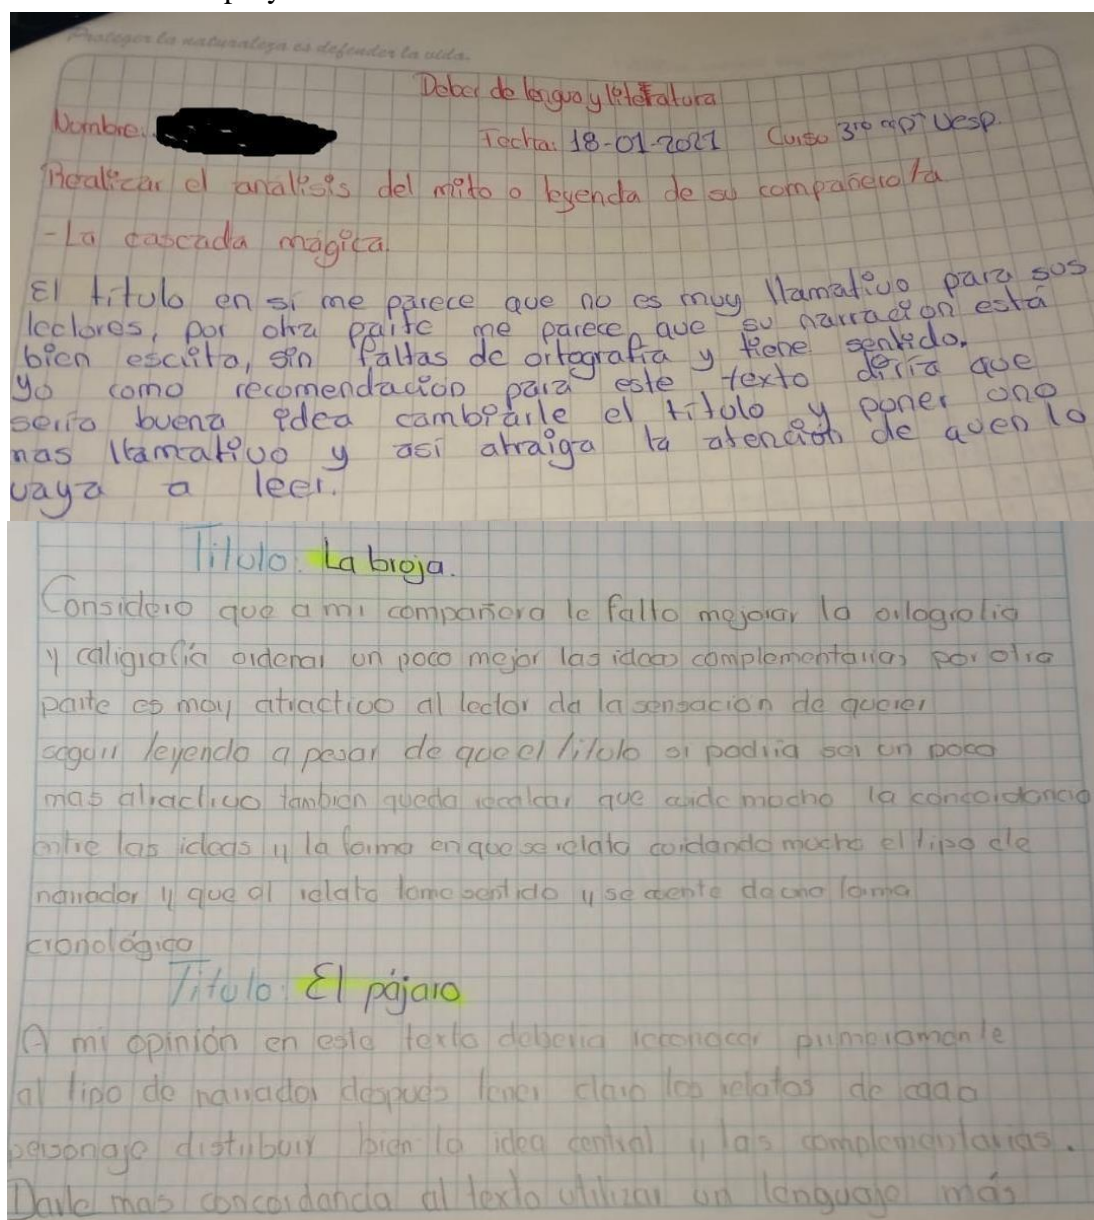 Proteger la naturaleza es defender la vida.
Deber de lengua y literatura
Nombre:
Fecha: 18-01-2021 Curso 3ro "D" Vesp.
Realizar el analisis del mito o leyenda de su compañero/a
-La cascada mágica.
El título en sí me parece que no es muy llamativo para sus
lectores, por otra parte me parece que su narración está
bien escrito, sin faltas de ortografía y tiene sentido.
Yo como recomendación para este texto diría que
sería buena idea cambiarle el título y poner uno
mas llamativo y así atraiga la atención de quen lo
vaya a leer.
Título: La broja.
Considero que a mi compañera le falto mejorar la ortografia
y caligrafía ordenar un poco mejor las ideas complementarias por otra
parte es muy atractivo al lector da la sensacion de querer
seguir leyendo a pesar de que el titulo si podria ser un poco
mas atractivo tambien queda recalcar que cuide mucho la concordancia
entre las ideas y la forma en que se relata cuidando mucho el tipo de
narrador y que el relato tome sentido y se cuente de una forma
cronológica
Título: El pájaro
A mi opinión en este texto deberia reconocer primeramente
al tipo de narrador despues tener claro los relatos de cada
personaje distribuir bien la idea central y las complementarias.
Darle mas concordancia al texto utilizar un lenguaje más